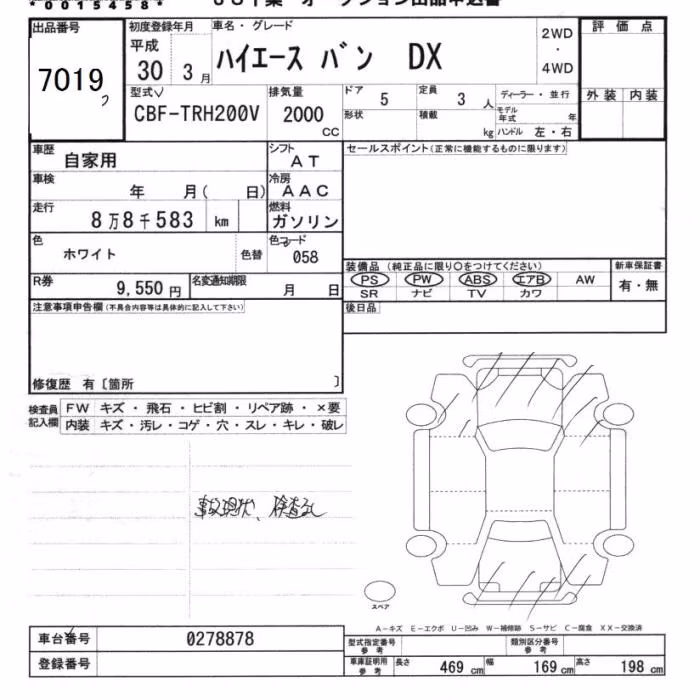 *0015458*
出品番号 初度登録年月 車名・グレード 2WD 評価点
7019 平成 ハイエース バン DX ・
30 3月 4WD
型式 排気量 ドア 5 定員 3人 ディーラー・並行 外装 内装
CBF-TRH200V 2000 CC 形状 積載 kg モデル年式 年
ハンドル 左・右
車歴 自家用 シフト AT セールスポイント(正常に機能するものに限ります)
車検 年 月( 日) 冷房 AAC
走行 8万8千583 km 燃料 ガソリン
色 ホワイト 色替 色コード 058
装備品 (純正品に限り〇をつけてください) 新車保証書
R券 9,550円 名変通知期限 月 日 PS PW ABS エアB AW 有・無
SR ナビ TV カワ
注意事項申告欄(不具合内容等は具体的に記入して下さい) 後日品
修復歴 有〔箇所 〕
検査員 FW キズ・飛石・ヒビ割・リペア跡・×要
記入欄 内装 キズ・汚レ・コゲ・穴・スレ・キレ・破レ
事故現状、検査なし
スペア
A-キズ E-エクボ U-凹み W-補修跡 S-サビ C-腐食 XX-交換済
車台番号 0278878 型式指定番号 参考 類別区分番号 参考
登録番号 車庫証明用 参考 長さ 469 cm 幅 169 cm 高さ 198 cm